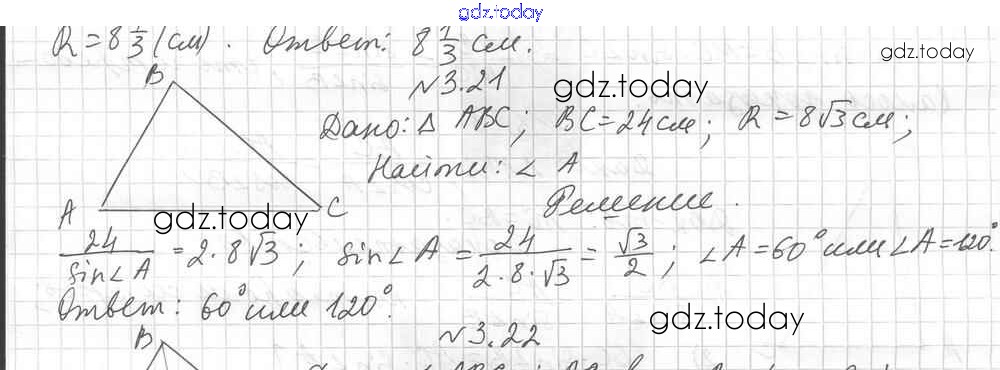 gdz.today
R = 8 1/3 (см). Ответ: 8 1/3 см.
gdz.today
B
№3.21
gdz.today
Дано: Δ ABC; BC = 24 см; R = 8√3 см;
Найти: ∠ A
A
C
Решение.
gdz.today
24/sin∠A = 2·8√3; sin∠A = 24/(2·8·√3) = √3/2; ∠A = 60° или ∠A = 120°.
Ответ: 60° или 120°.
gdz.today
B
№3.22